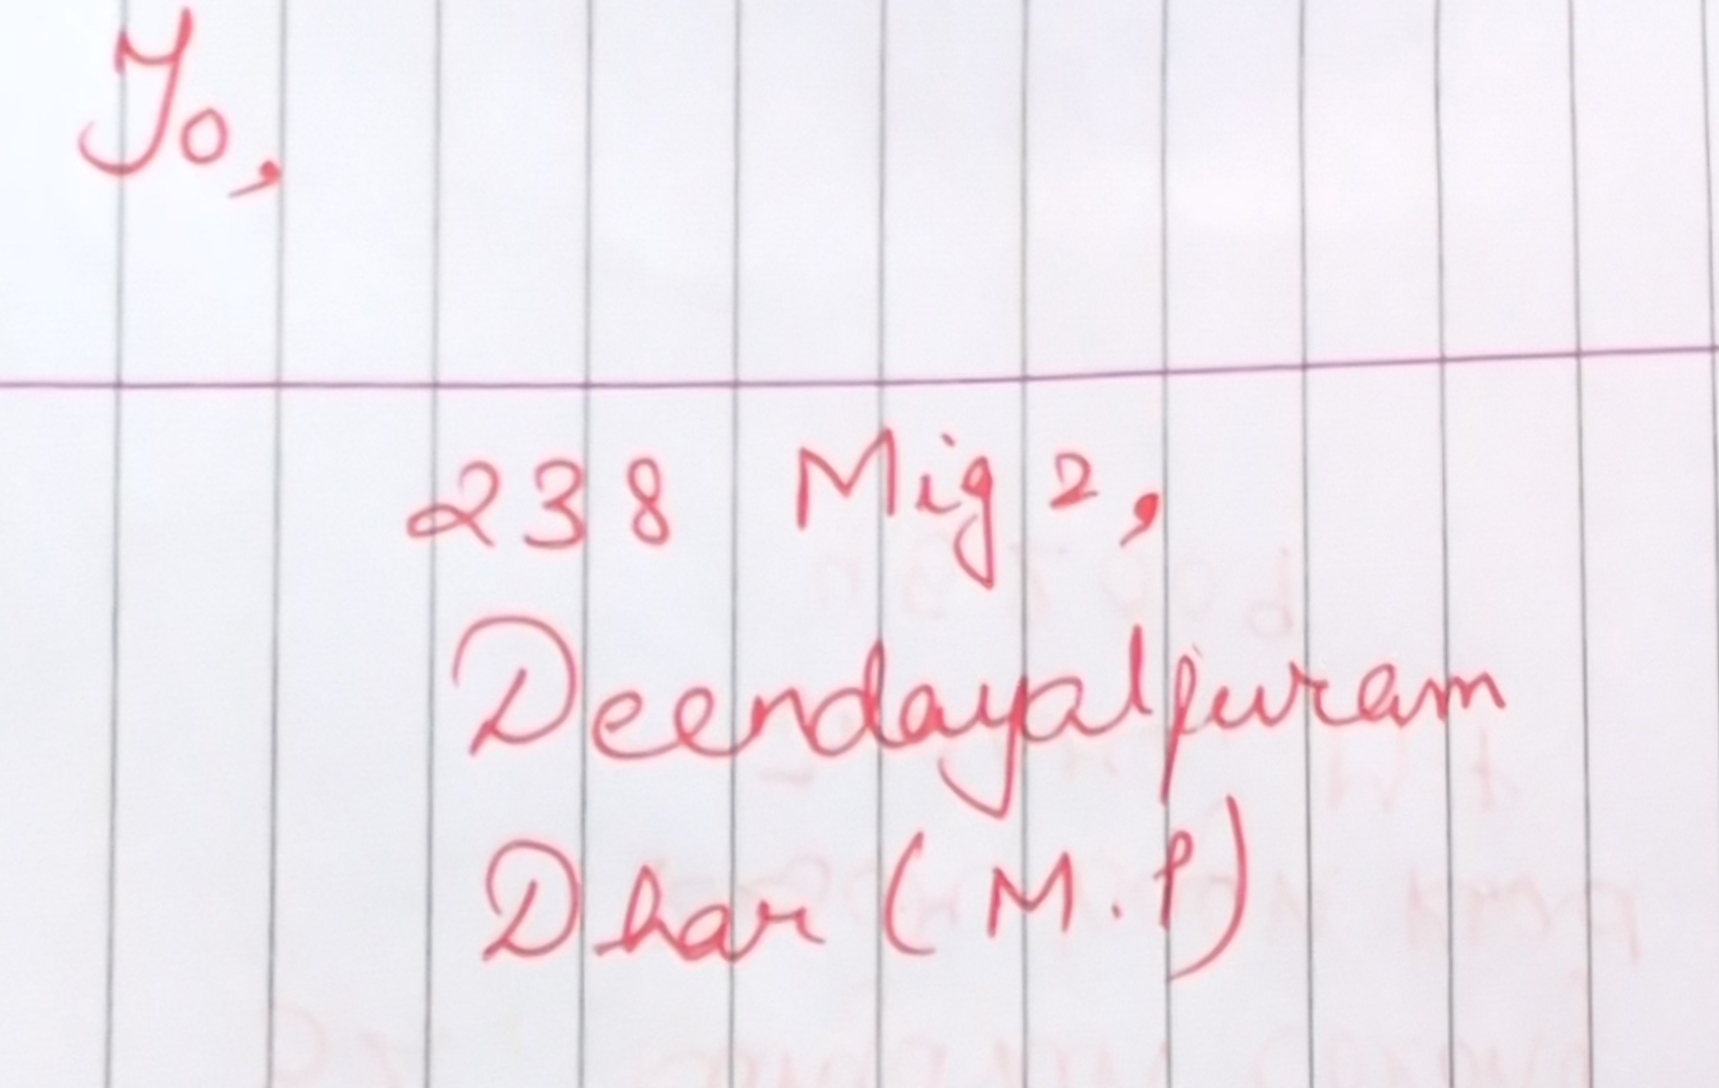 To,
238 Mig 2,
Deendayalpuram
Dhar (M.P)